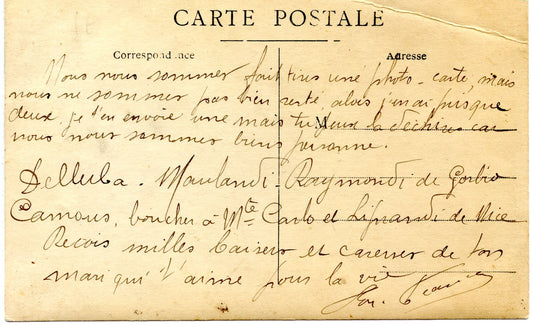 CARTE POSTALE
Correspondance
Adresse
Nous nous sommer fait tirer une photo-carte, mais
nous ne sommer pas bien resté, alors j'en ai pris que
deux, je t'en envoie une mais tu peux la déchirer car
M
nous nous sommer biens personne.
Delluba - Maulandi - Raymondi de Gorbio
Camous, boucher à Mte Carlo et Lifrandi de Nice
Recois milles baisers et caresser de ton
mari qui t'aime pour la vie